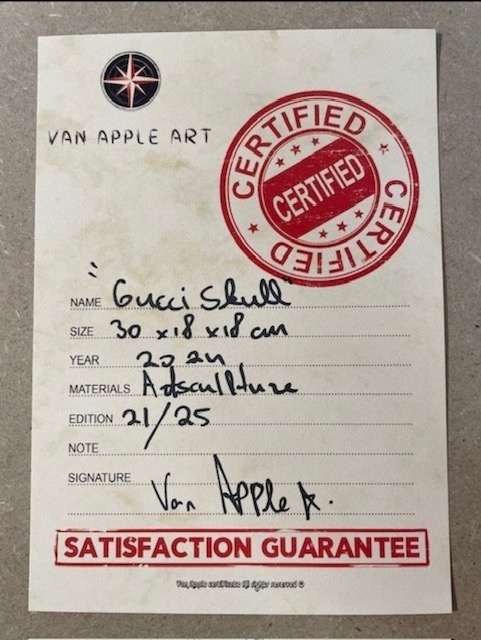 VAN APPLE ART
CERTIFIED
CERTIFIED
CERTIFIED
CERTIFIED
NAME "Gucci Skull"
SIZE 30 x 18 x 18 cm
YEAR 2024
MATERIALS Artsculpture
EDITION 21/25
NOTE
SIGNATURE Van Apple A.
SATISFACTION GUARANTEE
Van Apple certificate All rights reserved ©